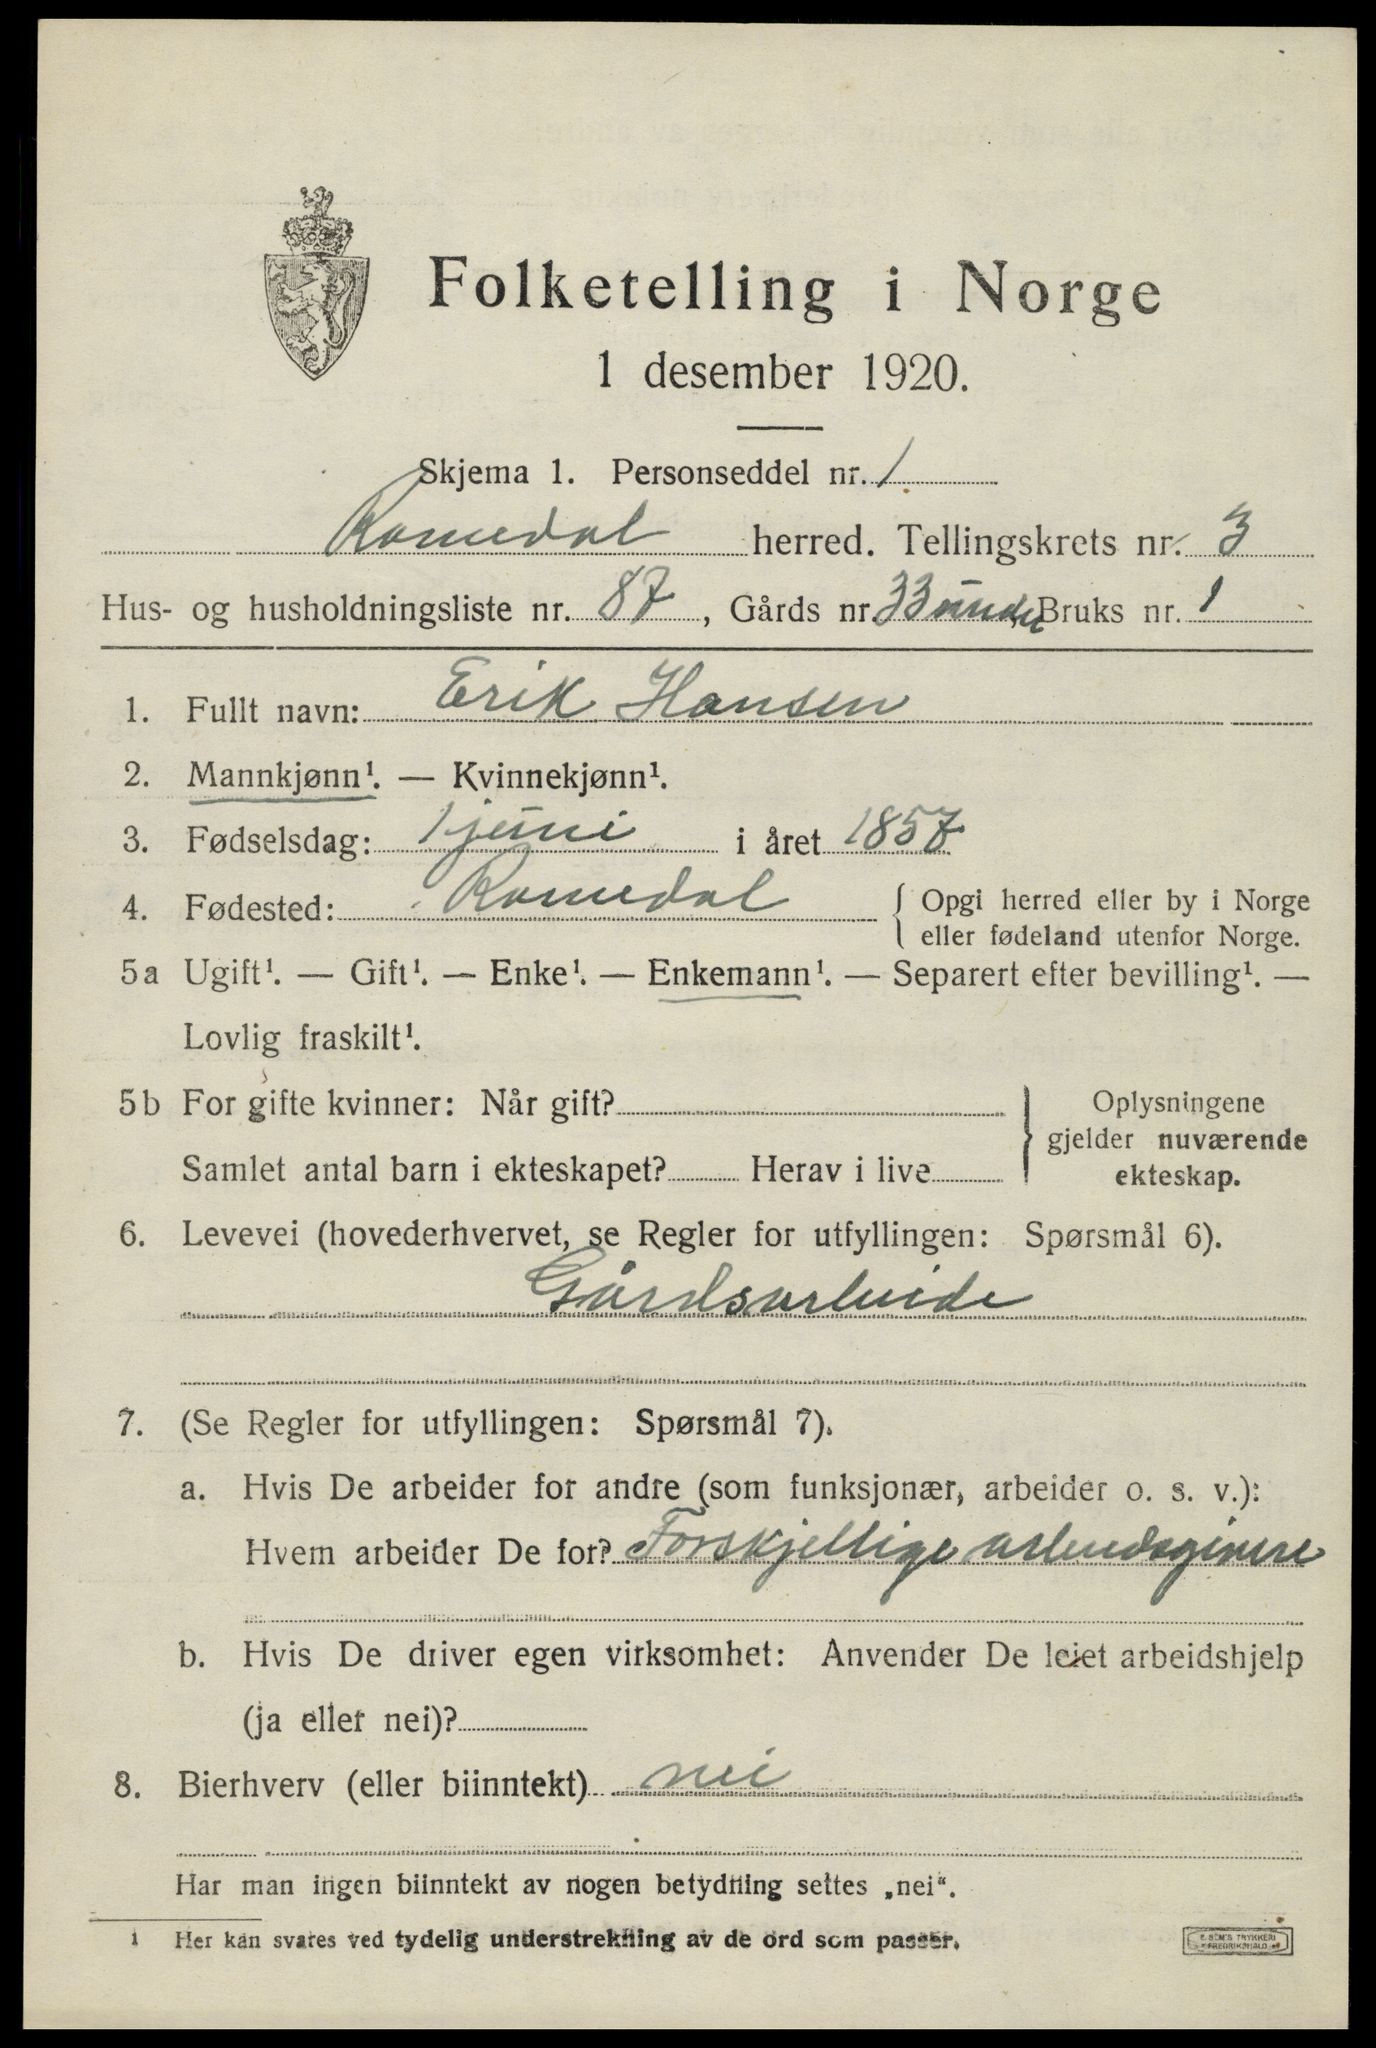 Folketelling i Norge
1 desember 1920.
Skjema 1. Personseddel nr. 1
Romedal herred. Tellingskrets nr. 3
Hus- og husholdningsliste nr. 87, Gårds nr. 33 under Bruks nr. 1
1. Fullt navn: Erik Hansen
2. Mannkjønn¹. — Kvinnekjønn¹.
3. Fødselsdag: 1 juni i året 1857
4. Fødested: Romedal { Opgi herred eller by i Norge
eller fødeland utenfor Norge.
5a Ugift¹. — Gift¹. — Enke¹. — Enkemann¹. — Separert efter bevilling¹. —
Lovlig fraskilt¹.
5b For gifte kvinner: Når gift? } Oplysningene
gjelder nuværende
Samlet antal barn i ekteskapet? Herav i live
ekteskap.
6. Levevei (hovederhvervet, se Regler for utfyllingen: Spørsmål 6).
Gårdsarbeide
7. (Se Regler for utfyllingen: Spørsmål 7).
a. Hvis De arbeider for andre (som funksjonær, arbeider o. s. v.):
Hvem arbeider De for? Forskjellige arbeidsgivere
b. Hvis De driver egen virksomhet: Anvender De leiet arbeidshjelp
(ja eller nei)?
8. Bierhverv (eller biinntekt) nei
Har man ingen biinntekt av nogen betydning settes „nei“.
1 Her kan svares ved tydelig understrekning av de ord som passer.
E. SEM'S TRYKKERI
FREDRIKSHALD